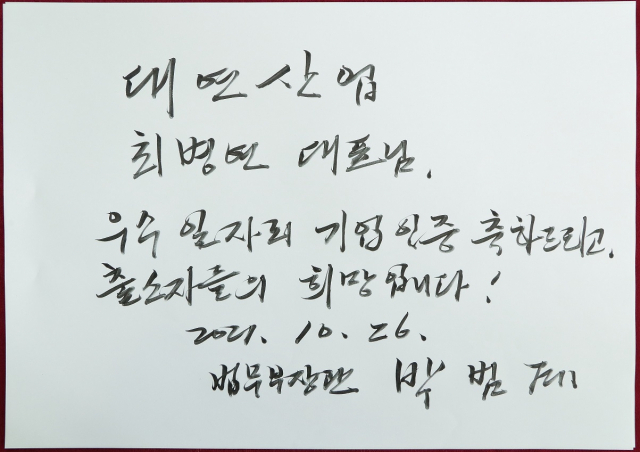 대연산업
최병연 대표님.
우수 일자리 기업인증 축하드리고,
출소자들의 희망입니다!
2021. 10. 26.
법무부장관 박범계